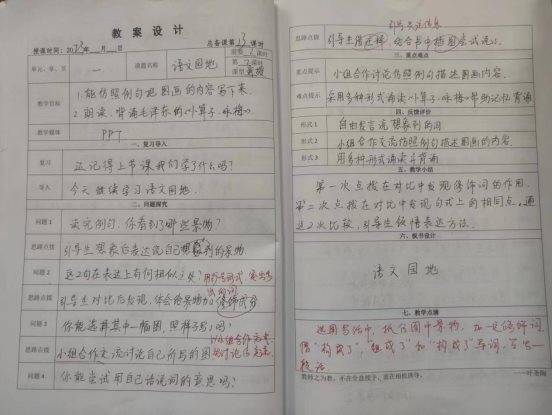 教 案 设 计
授课时间：2023年 月 日 总备课第13课时
单元、章、节 一 课题名称 语文园地 需要1课时
第2课时
课型 新授
教学目标 1.能仿照例句把图画的内容写下来。
2.朗读、背诵毛泽东的《卜算子·咏梅》
教学媒体 PPT
一、复习导入
复习 还记得上节课我们学了什么吗？
导入 今天继续学习语文园地。
二、问题探究
问题1 读完例句，你看到了哪些景物？
思路点拨 引导生想象后表达说自己想象到的景物。
问题2 这2句在表达上有何相似之处？
思路点拨 引导生对比后发现，体会给景物加上修饰成分
问题3 你能选择其中一幅图，照样子写写吗？
思路点拨 小组合作交流讨论自己所写的图
问题4 你能尝试用自己话说词的意思吗？
思路点拨 引导生借注释，结合书中插图尝试说说。
三、重点难点
重点提示 小组合作讨论仿照例句描述图画内容。
难点提示 采用多种形式诵读《卜算子·咏梅》帮助记忆背诵
四、反馈评价
形式1 自由发言说想象到的词。
形式2 小组合作交流仿照例句描述图画的内容。
形式3 用多种形式诵读与背诵
五、教学小结
第一次点拨在对比中发现修饰词的作用。
第二次点拨在对比中发现句式上的相同点。通
过2次比较，引导生领悟表达方法。
六、板书设计
语文园地
七、教学点滴
选图写话中，抓住图中景物，加一定修饰词，
借“构成了”，“组成了”和“构成了”等词，写出一
段话。
教师之为教，不在全盘授予，而在相机诱导。 ——叶圣陶